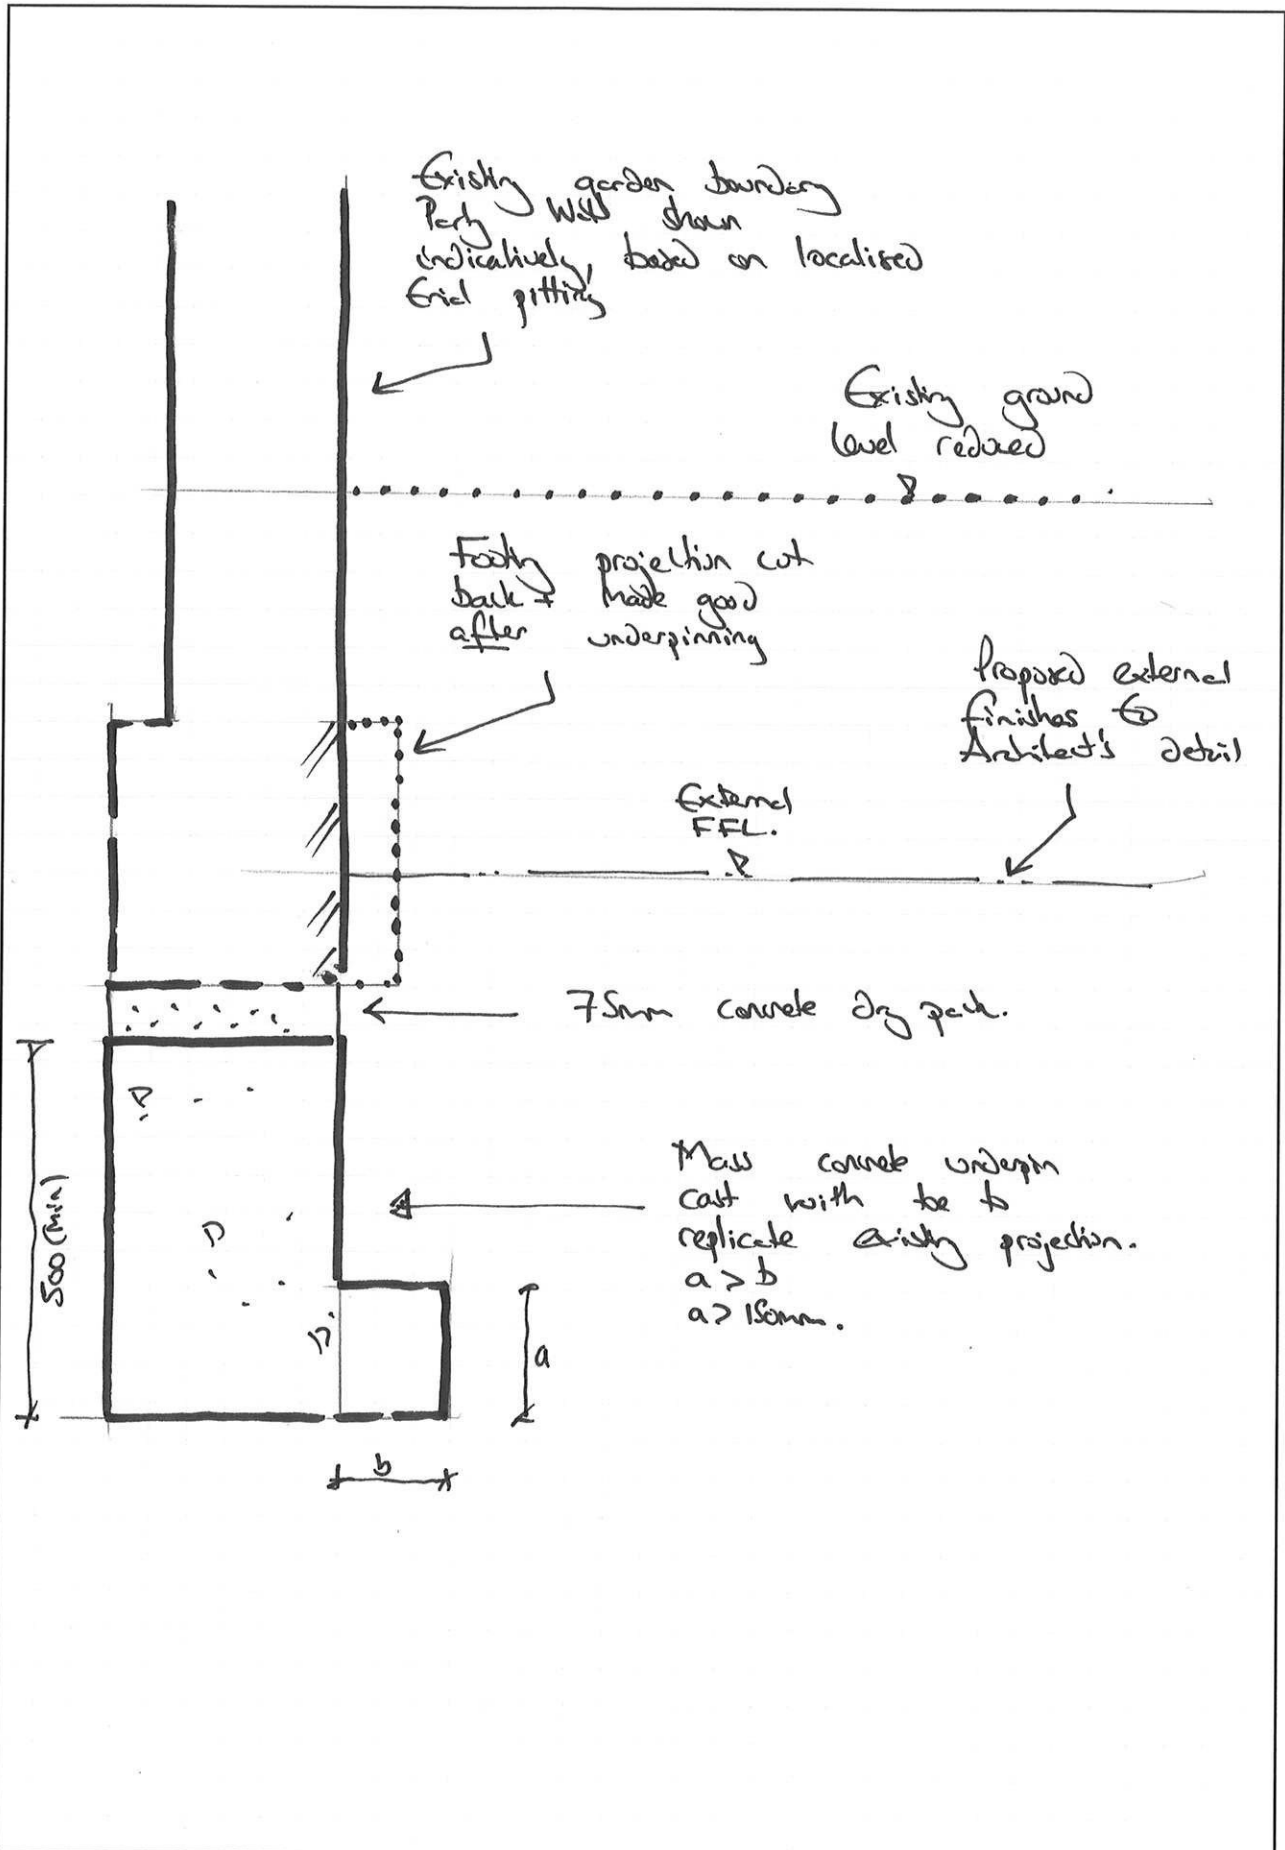 Existing garden boundary
Party Wall shown
indicatively, based on localised
trial pitting
Existing ground
level reduced
Footing projection cut
back + made good
after underpinning
Proposed external
finishes to
Architect's detail
External
FFL.
75mm concrete dry pack.
500 (min)
Mass concrete underpin
cast with toe to
replicate existing projection.
a > b
a > 150mm.
a
b